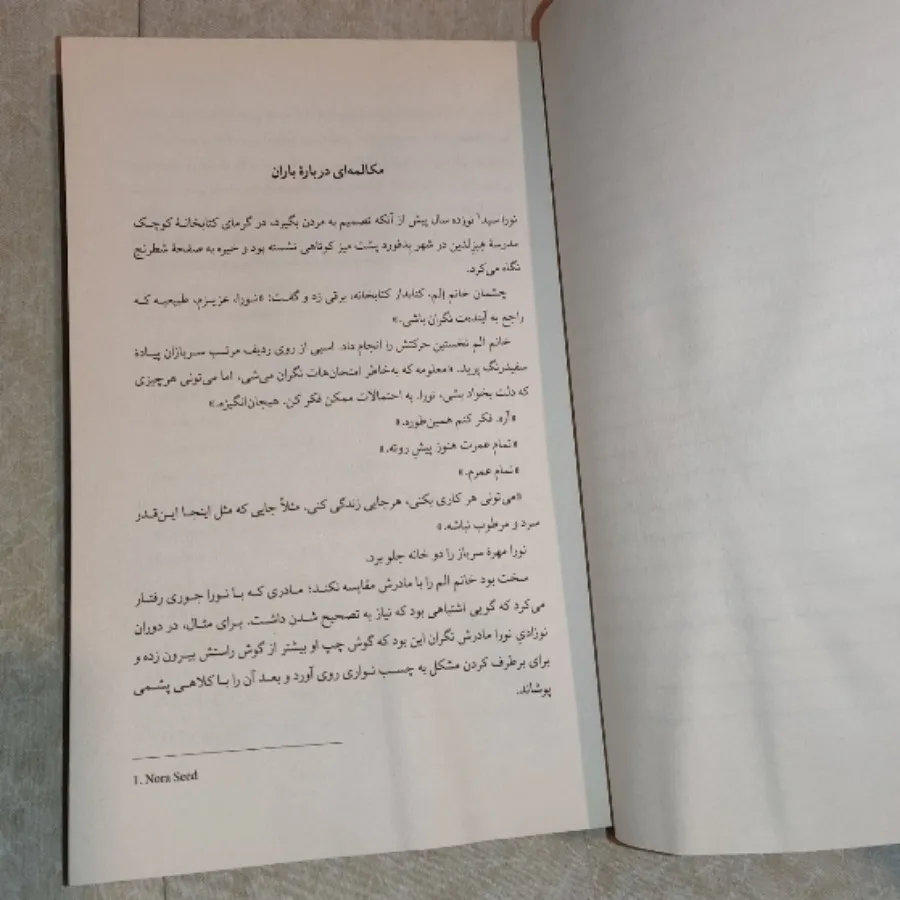 مکالمه‌ای دربارهٔ باران
نورا سید۱ نوزده سال پیش از آنکه تصمیم به مردن بگیرد، در گرمای کتابخانهٔ کوچک
مدرسهٔ هیزلدین در شهر بدفورد پشت میز کوتاهی نشسته بود و خیره به صفحهٔ شطرنج
نگاه می‌کرد.
چشمان خانم اِلم، کتابدار کتابخانه، برقی زد و گفت: «نورا، عزیزم، طبیعیه که
راجع به آینده‌ت نگران باشی.»
خانم الم نخستین حرکتش را انجام داد. اسبی از روی ردیف مرتب سربازان پیادهٔ
سفیدرنگ پرید. «معلومه که به‌خاطر امتحان‌هات نگران می‌شی، اما می‌تونی هرچیزی
که دلت بخواد بشی، نورا. به احتمالات ممکن فکر کن. هیجان‌انگیزه.»
«آره. فکر کنم همین‌طوره.»
«تمام عمرت هنوز پیشِ روته.»
«تمام عمرم.»
«می‌تونی هر کاری بکنی، هرجایی زندگی کنی. مثلاً جایی که مثل اینجا این‌قدر
سرد و مرطوب نباشه.»
نورا مهرهٔ سرباز را دو خانه جلو برد.
سخت بود خانم الم را با مادرش مقایسه نکند؛ مادری که با نورا جوری رفتار
می‌کرد که گویی اشتباهی بود که نیاز به تصحیح شدن داشت. برای مثال، در دوران
نوزادیِ نورا مادرش نگران این بود که گوش چپ او بیشتر از گوش راستش بیرون زده و
برای برطرف کردن مشکل به چسب نواری روی آورد و بعد آن را با کلاهی پشمی
پوشاند.
1. Nora Seed